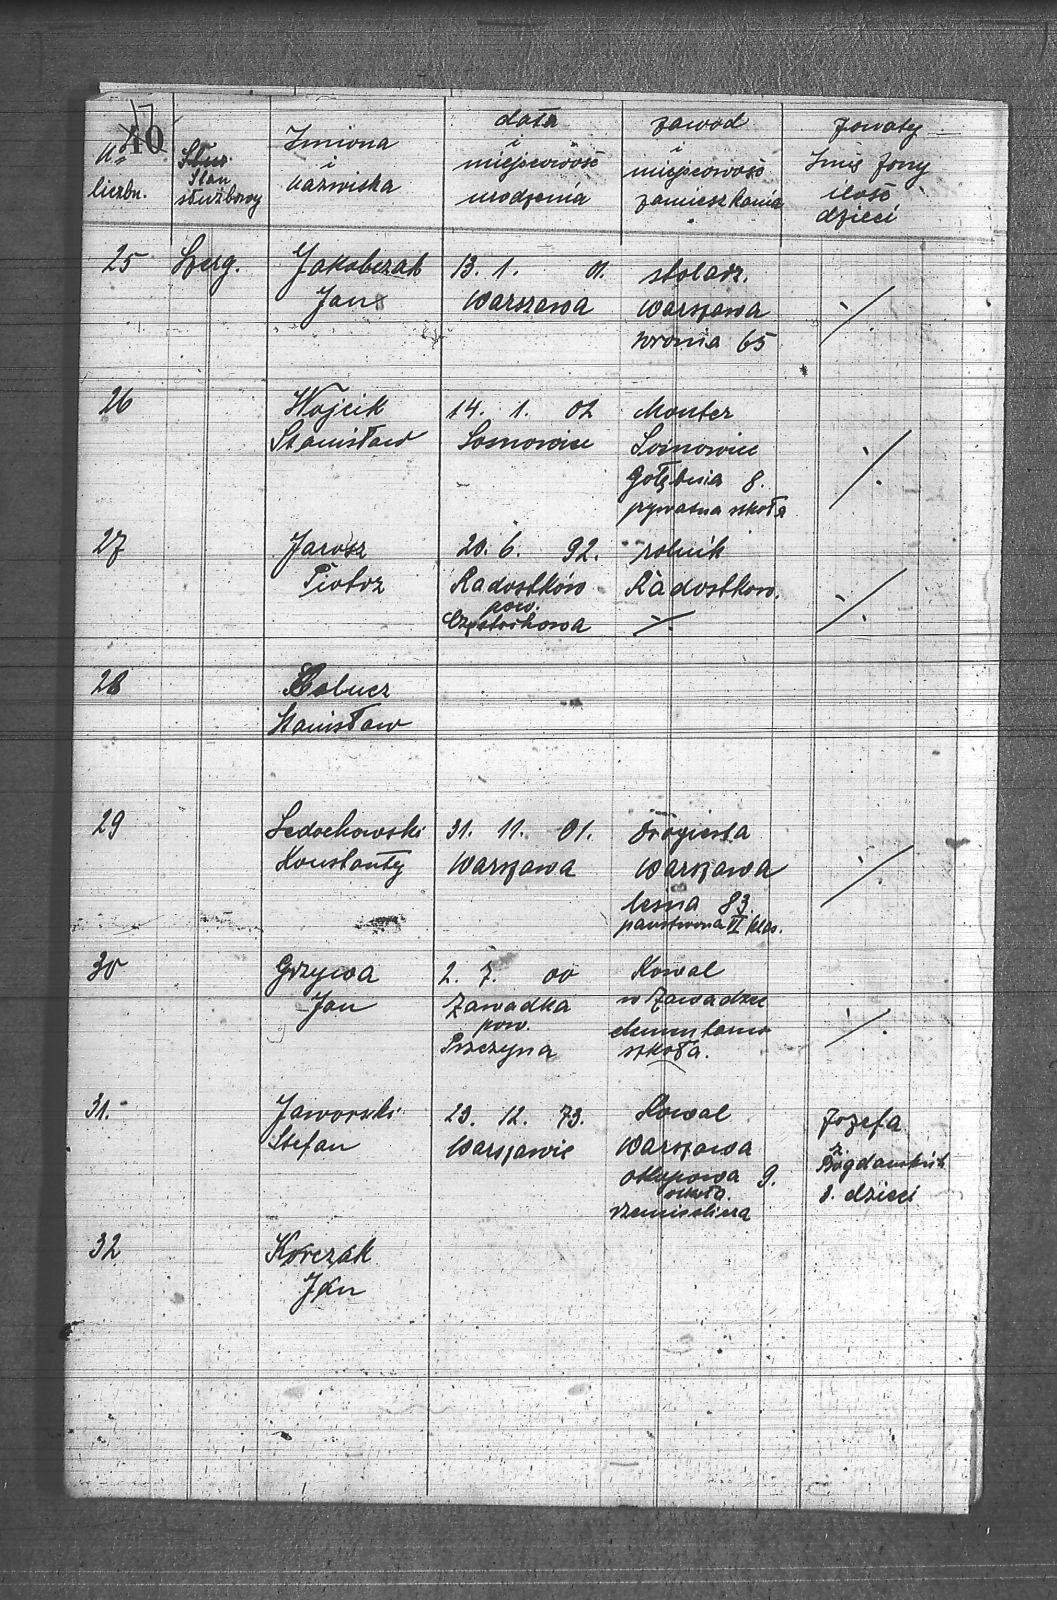 17
40
No
liczbn.
Stan
służbowy
Imiona
i
nazwiska
data
i
miejscowość
urodzenia
zawód
i
miejscowość
zamieszkania
żonaty
Imię żony
ilość
dzieci
25 Szerg. Jakobczak 13. 1. 01. stolarz.
Jan Warszawa Warszawa
wronia 65
26 Wojcik 14. 1. 02 Monter
Stanisław Sosnowice Sosnowice
Gołębia 8.
prywatna szkoła
27 Jarosz 20. 6. 92. rolnik
Piotr Radostków Radostkow.
pow.
Częstochowa
28
Stanisław
29 Ledochowski 31. 11. 01. Drogista
Konstanty Warszawa Warszawa
lesna 83
państwowa VI klas.
30 Grzywa 2. 7. 00 Kowal
Jan Zawadka w Zawadzce
pow. elementarna
Pszczyna szkoła.
31. Jaworski 23. 12. 73. Kowal Jozefa
Stefan Warszawie Warszawa z.
okopowa 9. Bogdanskich
szkoła. 8. dzieci
rzemieslicza
32 Korczak
Jan